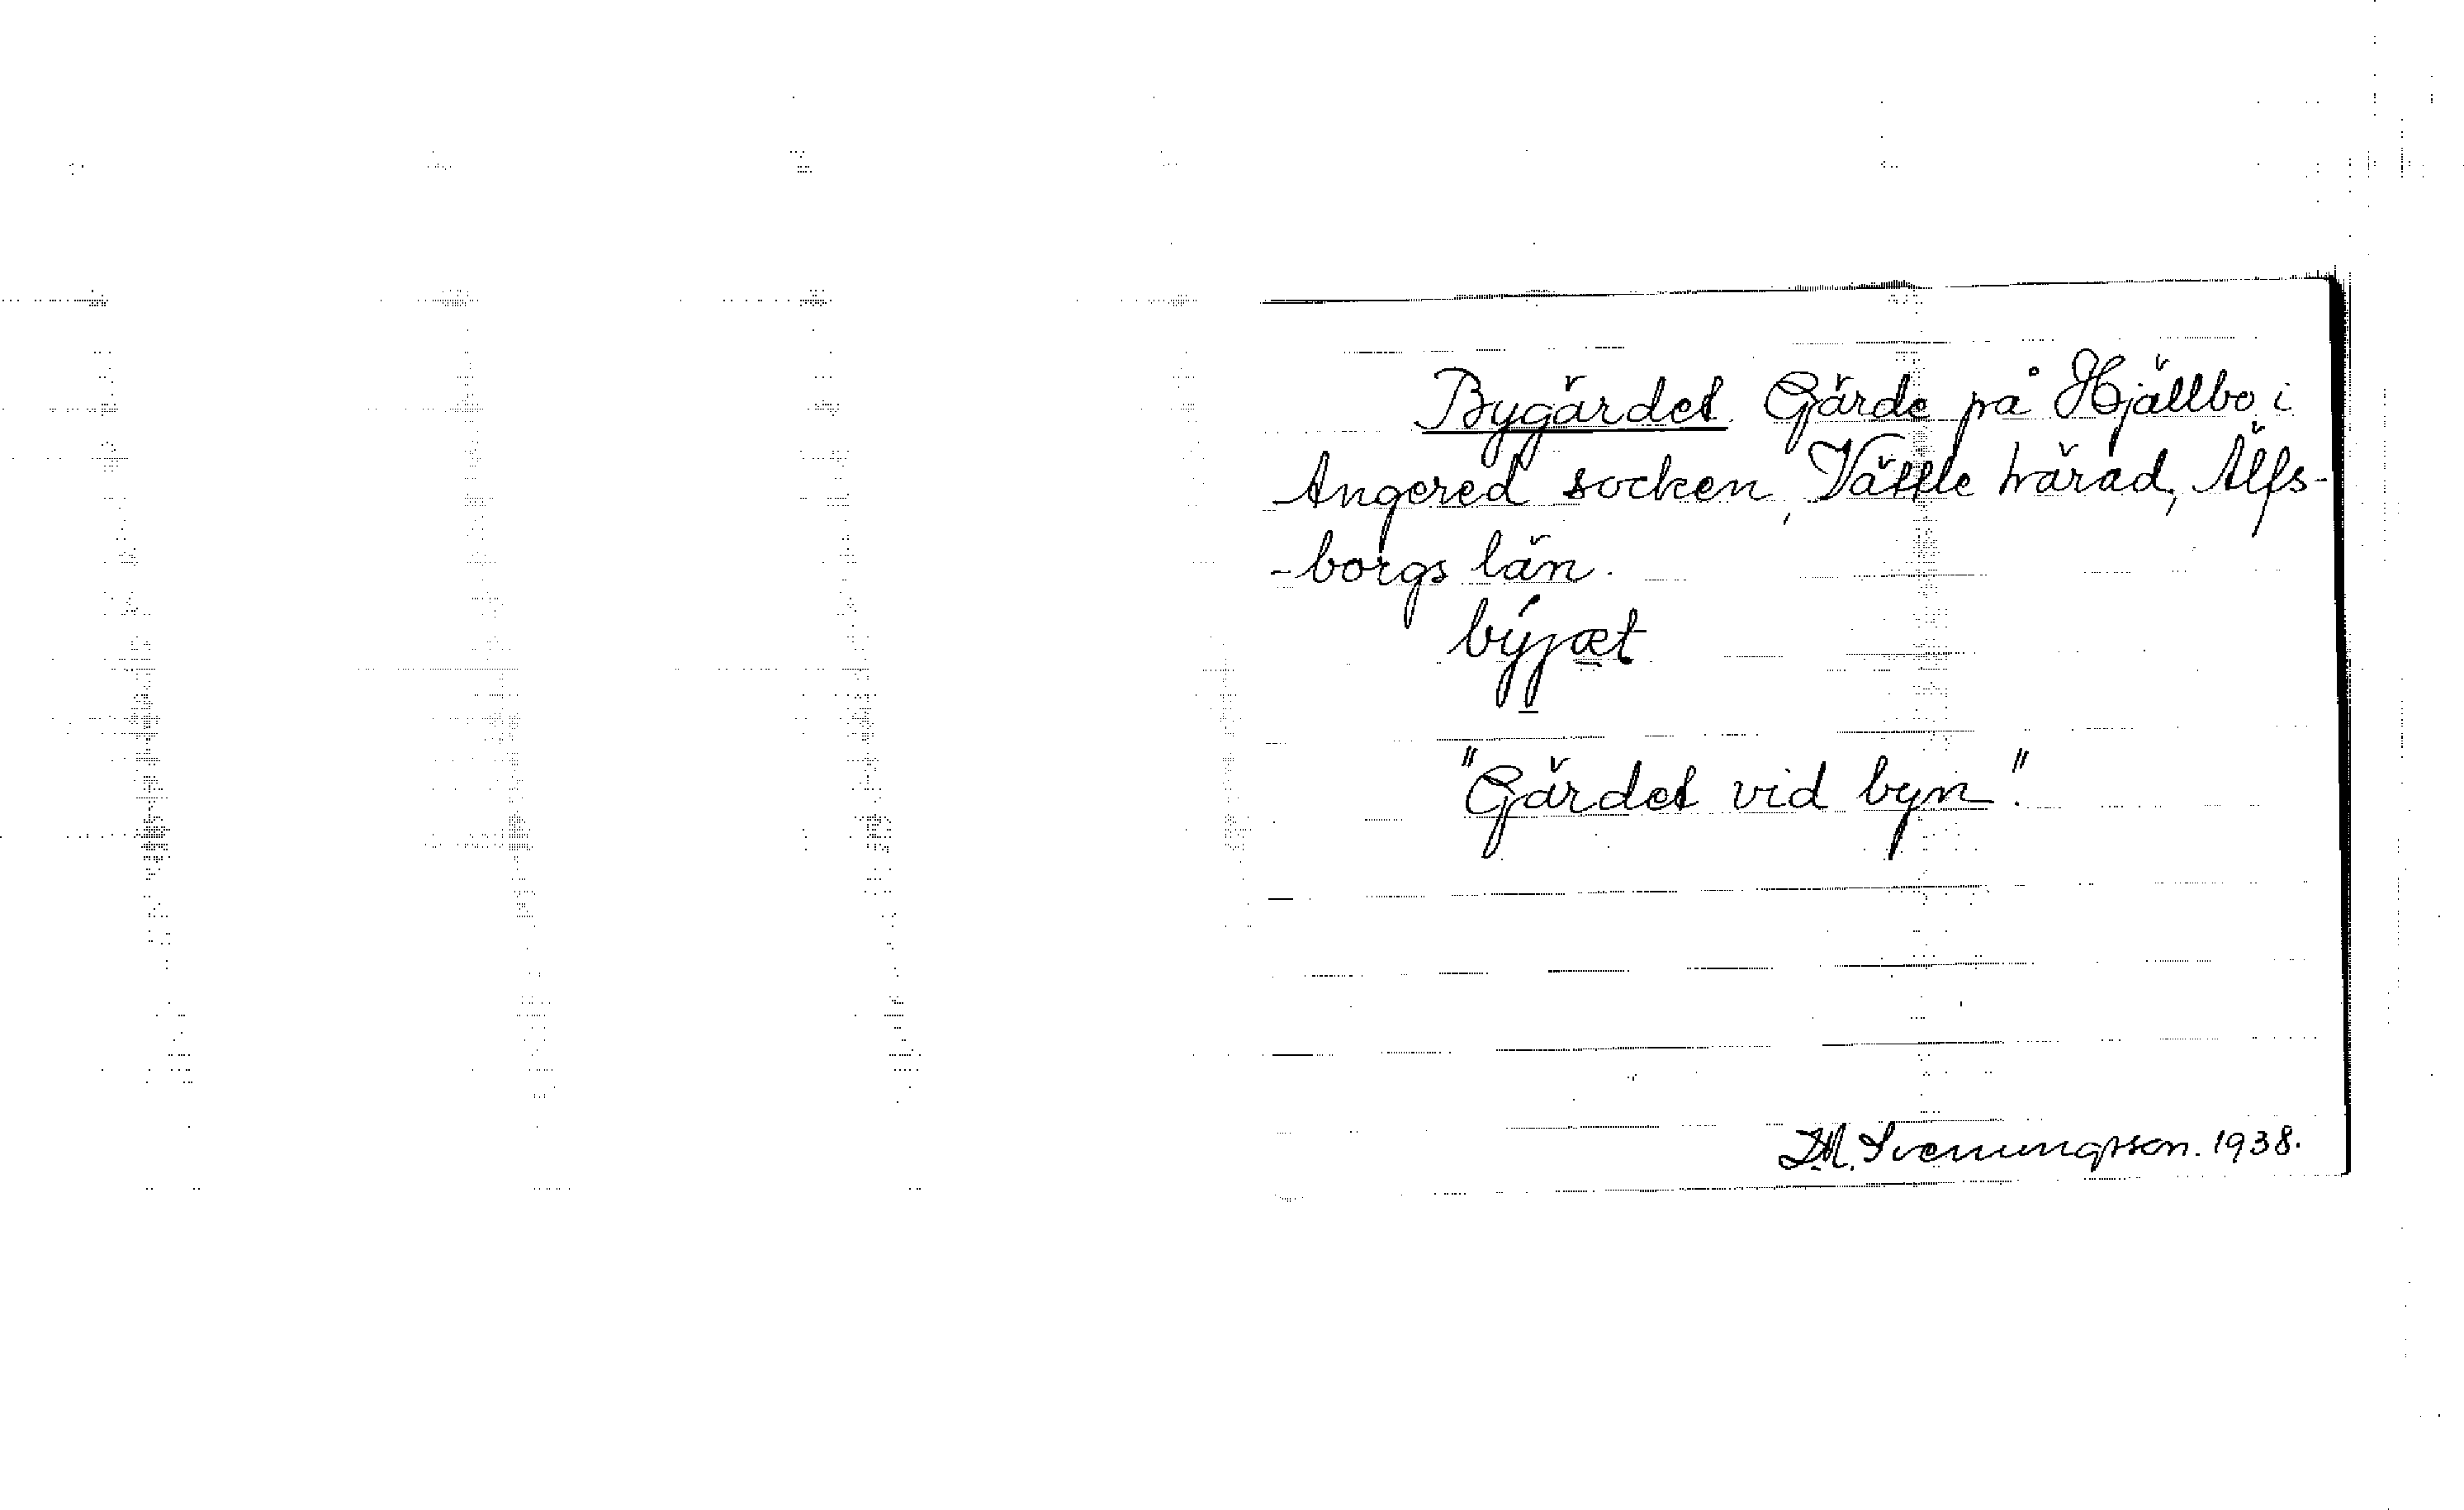 Bygärdet. Gärde på Hjällbo i
Angered socken, Vättle härad, Älfs-
-borgs län.
býjæt
"Gärdet vid byn".
D.M. Svenungsson. 1938.